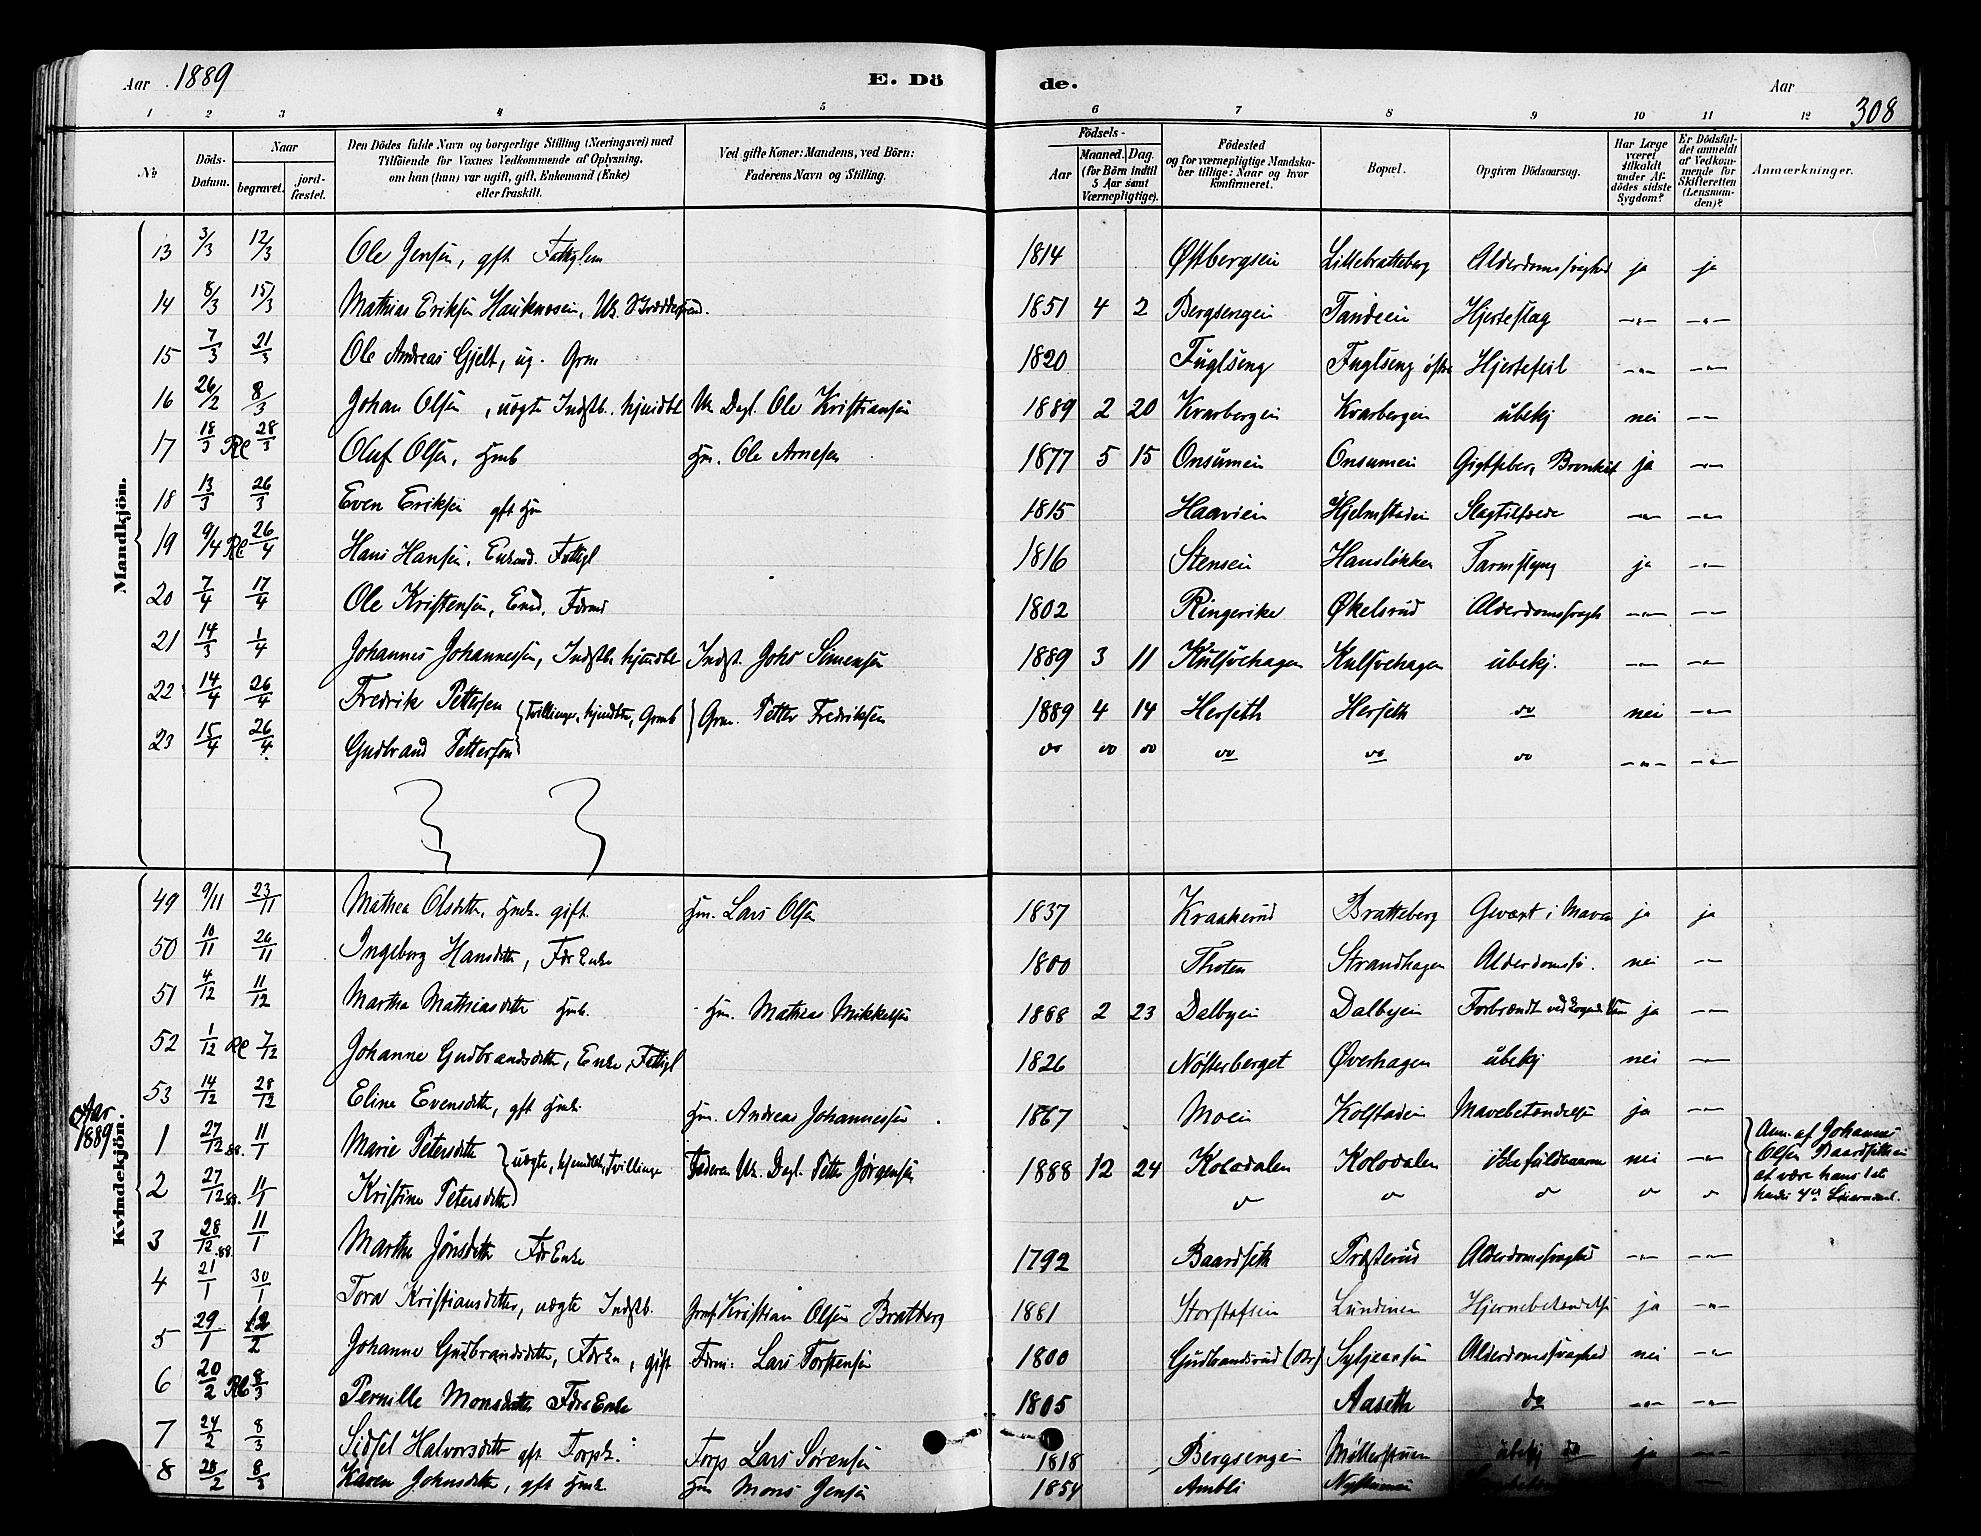 Aar 1889 E. Dö de. Aar 308
1 2 3 4 5 6 7 8 9 10 11 12
№ Döds-Datum. Naar begravet. jordfæstet. Den Dödes fulde Navn og borgerlige Stilling (Næringsvei) med Tilföiende for Voxnes Vedkommende af Oplysning, om han (hun) var ugift, gift, Enkemand (Enke) eller fraskilt. Ved gifte Koner: Mandens, ved Börn: Faderens Navn og Stilling. Födsels- Aar Maaned. Dag. (for Börn indtil 5 Aar samt Værnepligtige). Födested og for værnepligtige Mandskaber tillige: Naar og hvor konfirmeret. Bopæl. Opgiven Dödsaarsag. Har Læge været tilkaldt under Afdödes sidste Sygdom? Er Dödsfaldet anmeldt af Vedkommende for Skifteretten (Lensmanden)? Anmærkninger.
Mandkjön.
13 3/3 12/3 Ole Jensen, gft Fattiglem 1814 Østbergseien Lillebratteberg Alderdomssvaghed ja ja
14 8/3 15/3 Mathias Eriksen 1851 4 2 Bergsengen Tandeien Hjerteslag -"- -"-
15 7/3 21/3 Ole Andreas Gjelt, ug. Grm 1820 Fuglseng Fuglseng østre Hjertefeil -"- -"-
16 26/2 8/3 Johan Olsen, uægte Indstb. hjemdbt Uk Dagl. Ole Kristiansen 1889 2 20 Kvarbergeien Kvarbergeien ubekj nei -"-
17 18/3 Rl 28/3 Oluf Olsen, Hmb Hm. Ole Arnesen 1877 5 15 Onsumeien Onsumeien Gigtfeber, Bronkit ja -"-
18 13/3 26/3 Even Eriksen gft Hm 1815 Haavien Hjelmstadeien Slagtilfælde -"- -"-
19 9/4 Rl 26/4 Hans Hansen, Enkmd. Fattigl 1816 Stenseien Hansløkken Tarmslyng ja -"-
20 7/4 17/4 Ole Kristensen, Enkd, 1802 Ringerike Økelsrud Alderdomssvagh -"- -"-
21 14/3 1/4 Johannes Johannessen, Indstb hjemdbt Indst. Johs Simensen 1889 3 11 Kulsvehagen Kulsvehagen ubekj. -"- -"-
22 14/4 26/4 Fredrik Pettersen Tvillinger, hjemdbte, Grmb Grm. Petter Fredriksen 1889 4 14 Herseth Herseth do nei -"-
23 15/4 26/4 Gudbrand Pettersen do do do do do do -"- -"-
Kvindekjön.
49 9/11 23/11 Mathea Olsdtter, Hmk. gift. Hm. Lars Olsen 1837 Kraakerud Bratteberg Gevæxt i Maven ja ja
50 10/11 26/11 Ingeborg Hansdtter, Fdr Enke 1800 Thoten Strandhagen Alderdomssv. nei -"-
51 4/12 11/12 Martha Mathiasdtter Hmb. Hm. Mathias Mikkelsen 1888 2 23 Dalbyeien Dalbyeien Forbrændt ved kogende Van ja -"-
52 1/12 Rl 7/12 Johanne Gudbrandsdtter, Enke, Fattigl 1826 Nøsterberget Øverhagen ubekj nei -"-
53 14/12 28/12 Eline Evensdtter, gft Hmk. Hm. Andreas Johannessen 1867 Moen Kolstadeien Mavebetændelse ja -"-
Aar 1889
1 27/12 88. 11/1 Marie Petersdtter uægte, hjemdbte, Tvillinge Faderen Uk. Dagl. Petter Jørgensen 1888 12 24 Kolodalen Kolodalen nei -"- Anm. af Johannes Olsen Baardsetheien at være hans
2 27/12 88. 11/1 Kristine Petersdtter do do do do do
3 28/12 88. 11/1 Marthe Jonsdtter Fdr Enke 1792 Baardseth Præsterud Alderdomssvaghed -"- -"-
4 21/1 30/1 Tora Kristiansdtter, uægte Indstb. Kristian Olsen Bratberg 1881 Storstofseien Lundeneien Hjernebetændelse ja -"-
5 29/1 12/2 Johanne Gudbrandsdtter, gift Fdrm: Lars Torstensen 1800 Gudbrandsrud Alderdomssvaghed nei -"-
6 20/2 Rl 8/3 Pernille Monsdtter Fdr Enke 1805 Aaseth do -"- -"-
7 24/2 8/3 Sidsel Halvorsdtter gft Torpk. Torp Lars Sørensen 1818 Bergsengen Møllerstuen ubekj ja -"-
8 28/2 8/3 Karen Johnsdtter, gft Hmk Hm Mons Jensen 1854 Ambli -"-